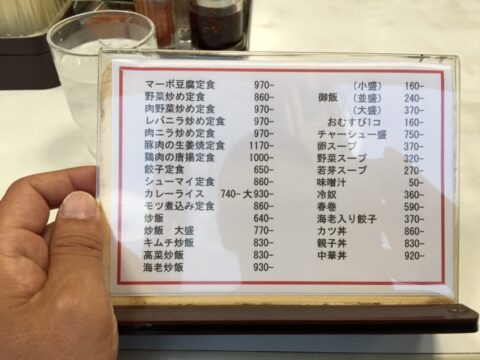 マーボ豆腐定食 970-
野菜炒め定食 860-
肉野菜炒め定食 970-
レバニラ炒め定食 970-
肉ニラ炒め定食 970-
豚肉の生姜焼定食 1170-
鶏肉の唐揚定食 1000-
餃子定食 650-
シューマイ定食 860-
カレーライス 740- 大930-
モツ煮込み定食 860-
炒飯 640-
炒飯 大盛 770-
キムチ炒飯 830-
高菜炒飯 830-
海老炒飯 930-
(小盛) 160-
御飯 (並盛) 240-
(大盛) 370-
おむすび1コ 160-
チャーシュー盛 750-
卵スープ 370-
野菜スープ 320-
若芽スープ 270-
味噌汁 50-
冷奴 360-
春巻 590-
海老入り餃子 370-
カツ丼 860-
親子丼 830-
中華丼 920-